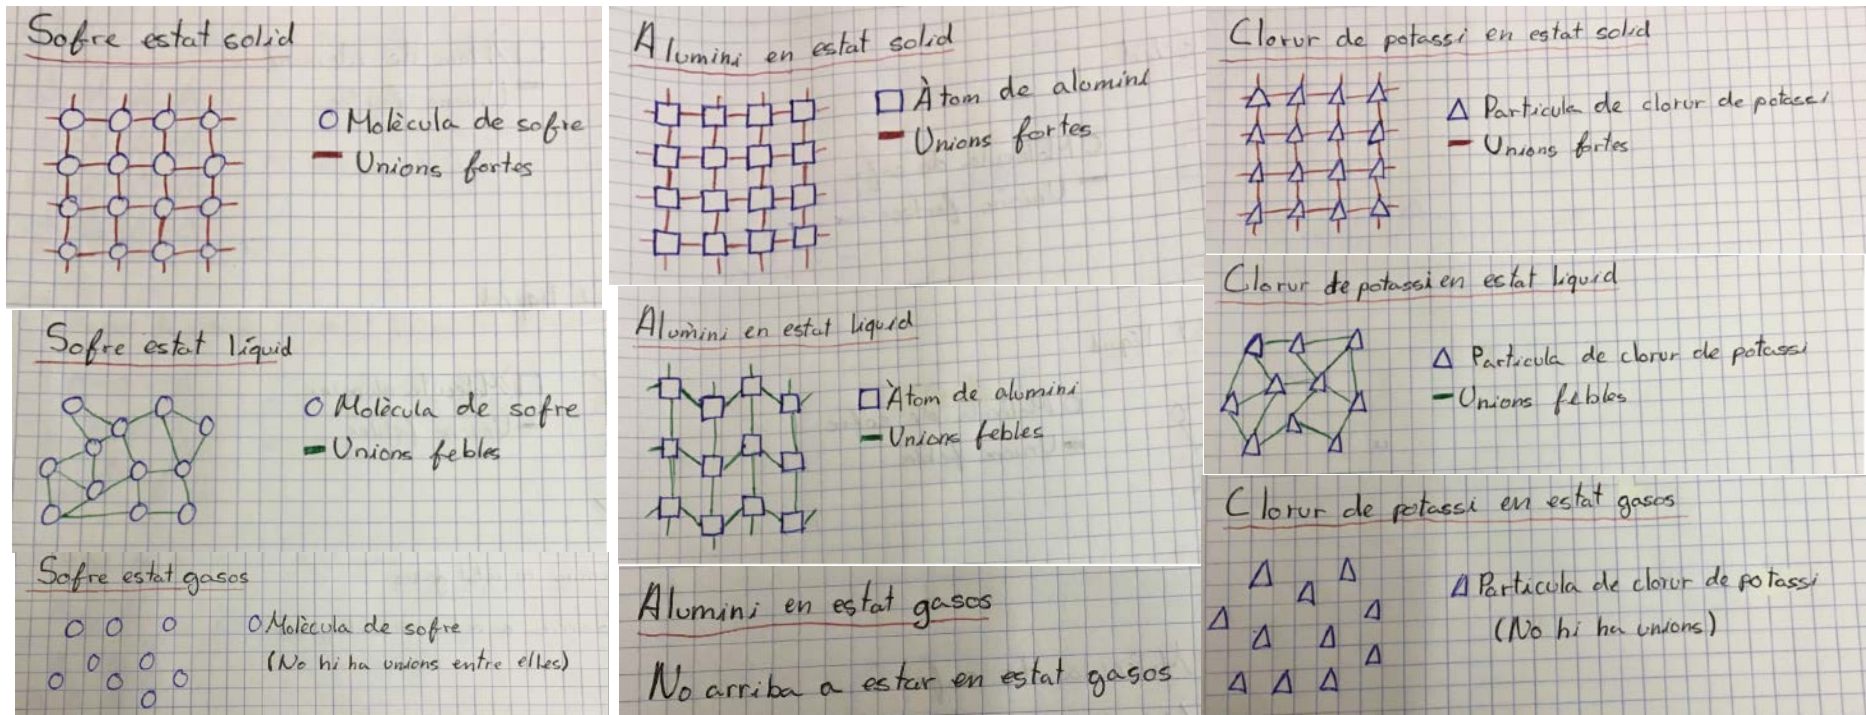 Sofre estat solid
Molècula de sofre
Unions fortes
Sofre estat líquid
Molècula de sofre
Unions febles
Sofre estat gasos
Molècula de sofre
(No hi ha unions entre elles)
Alumini en estat solid
Àtom de alumini
Unions fortes
Alumini en estat liquid
Àtom de alumini
Unions febles
Alumini en estat gasos
No arriba a estar en estat gasos
Clorur de potassi en estat solid
Particula de clorur de potassi
Unions fortes
Clorur de potassi en estat liquid
Particula de clorur de potassi
Unions febles
Clorur de potassi en estat gasos
Particula de clorur de potassi
(No hi ha unions)